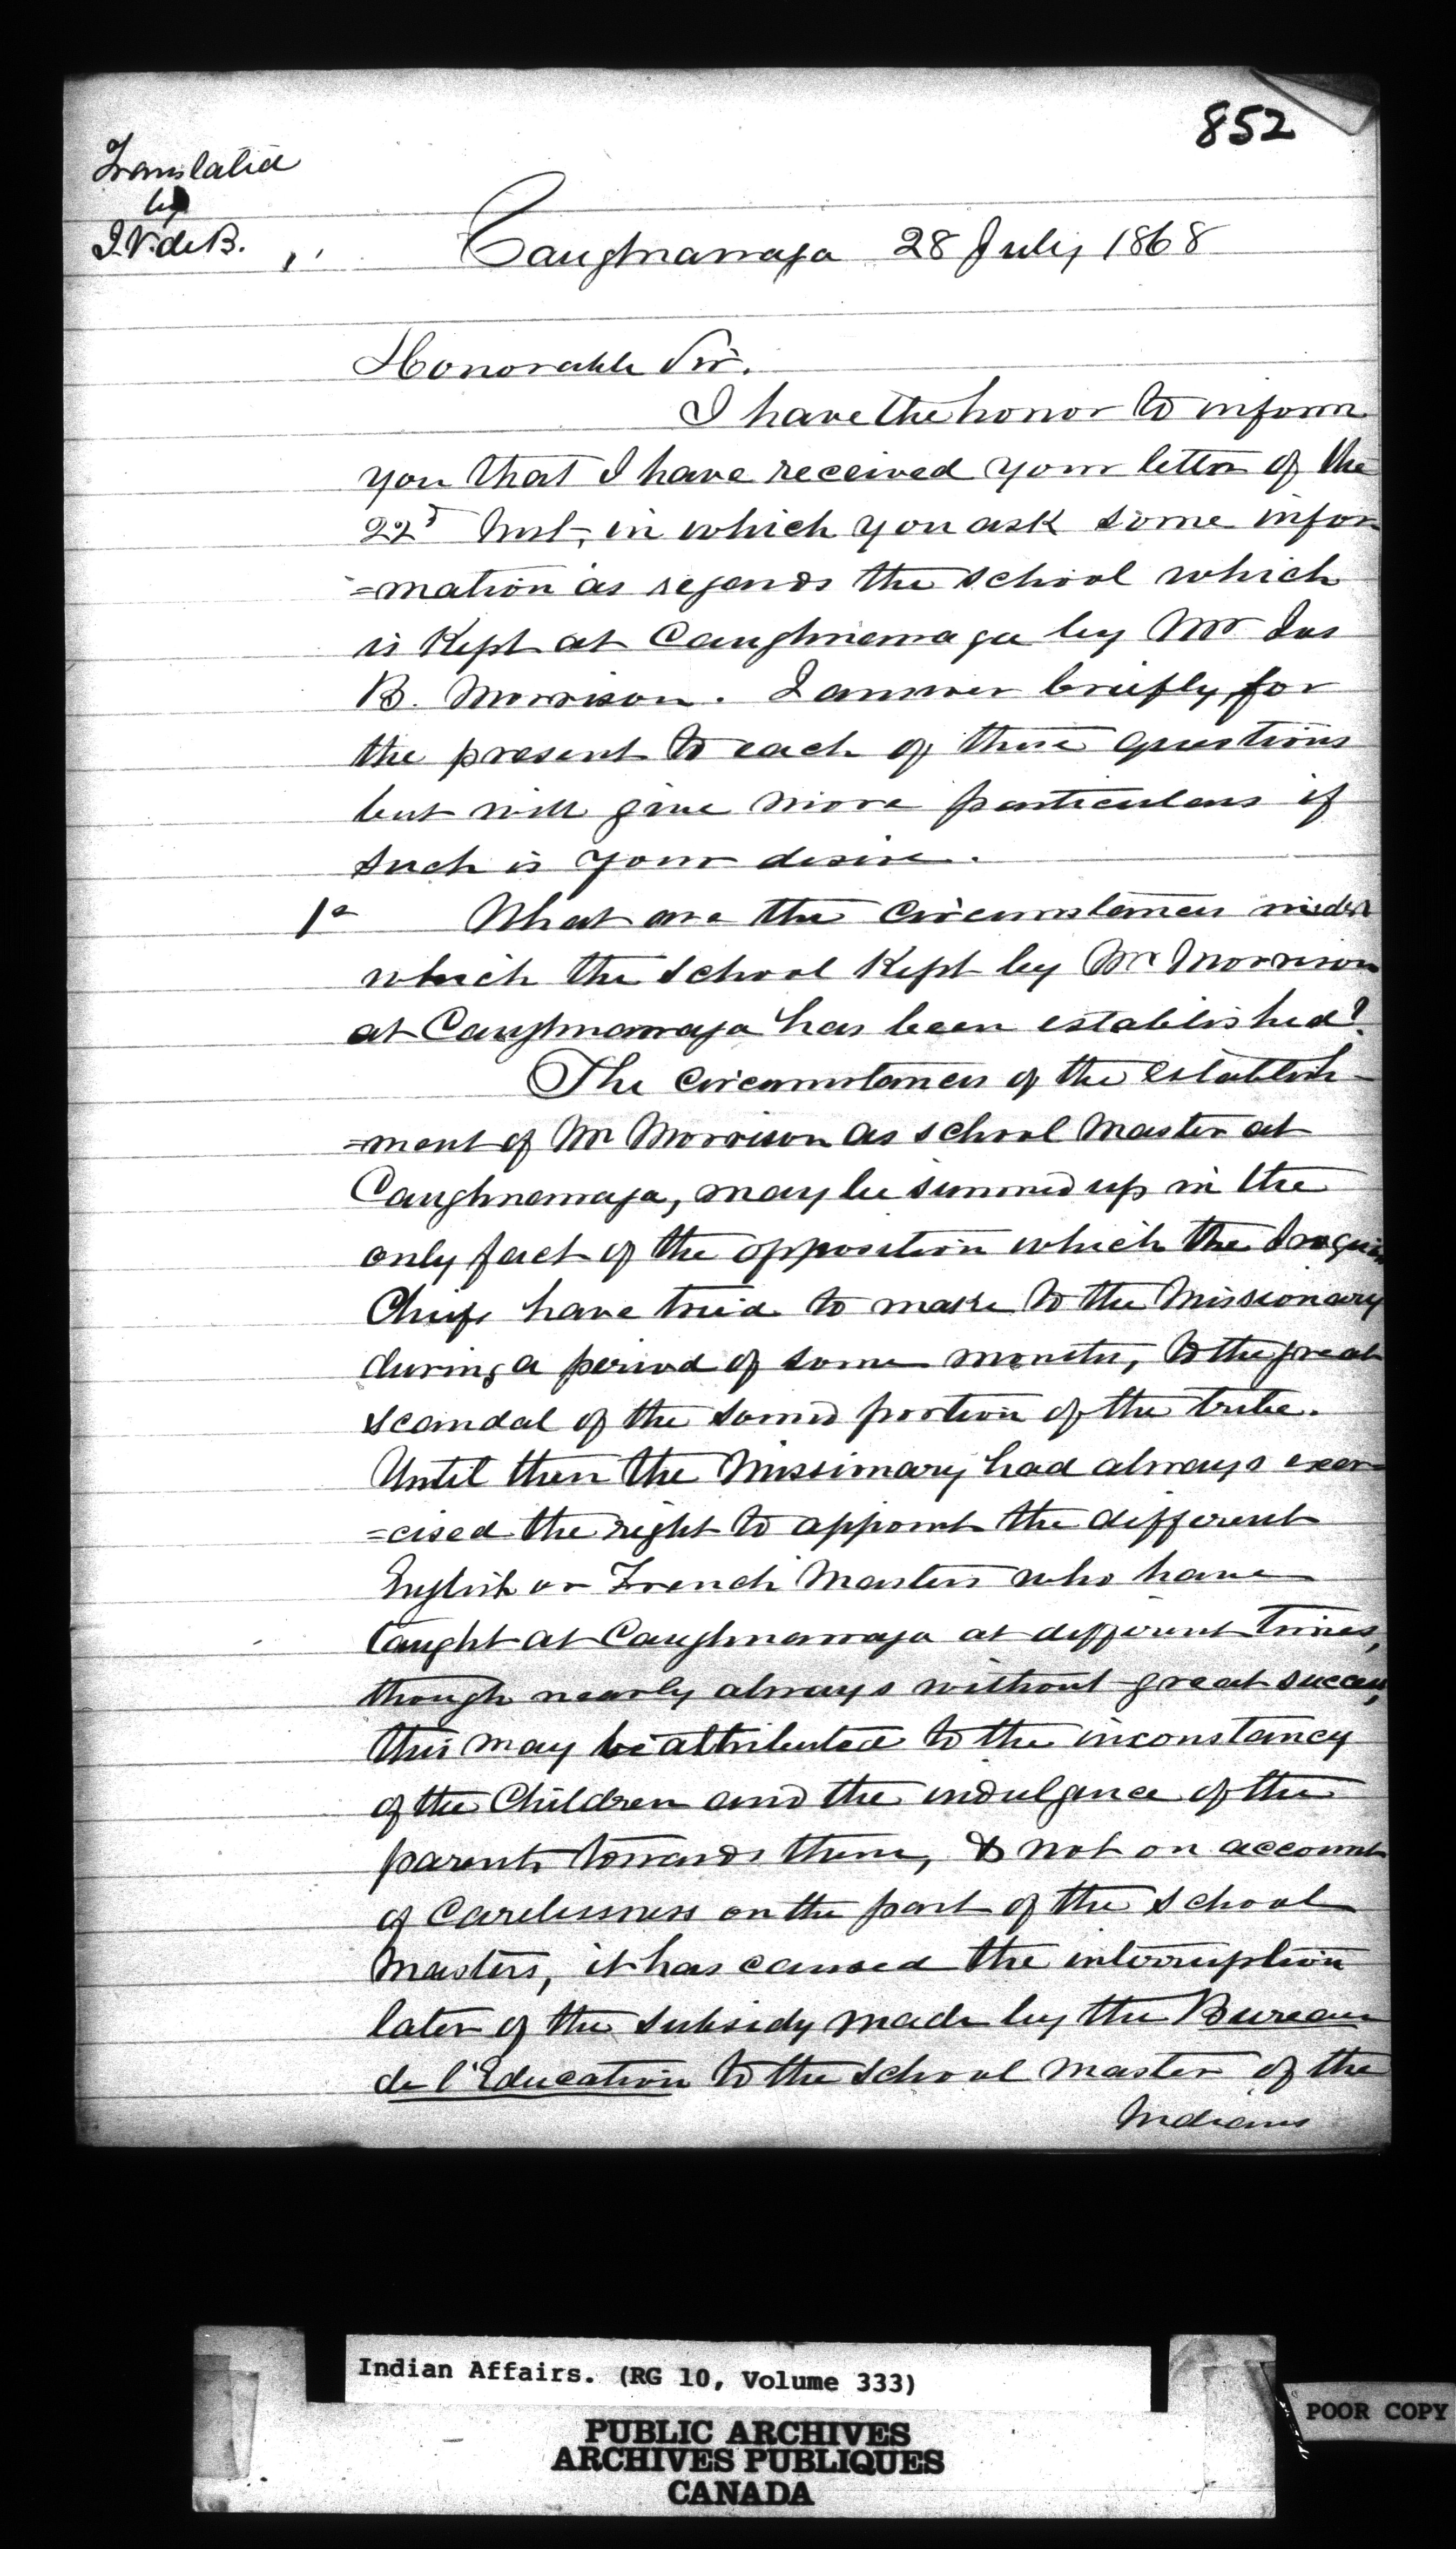 852
Translated
by
I.V. de B.
Caughnawaga 28 July 1868
Honorable Sir.
I have the honor to inform
you that I have received your letter of the
22d Inst, in which you ask some infor
=mation as regards the school which
is Kept at Caughnawaga by Mr Jas
B. Morrison. I answer briefly for
the present to each of these questions
but will give more particulars if
such is your desire.
1o What are the circumstances under
which the school Kept by Mr Morrison
at Caughnawaga has been established?
The circumstances of the establish-
=ment of Mr Morrison as school Master at
Caughnawaga, may be summed up in the
only fact of the opposition which the Iroquois
Chiefs have tried to make to the Missionary
during a period of some months, to the great
scandal of the sound portion of the tribe.
Until then the Missionary had always exer
=cised the right to appoint the different
English or French Masters who have
taught at Caughnawaga at different times,
though nearly always without great success,
this may be attributed to the inconstancy
of the Children and the indulgence of the
parents towards them, & not on account
of carelessness on the part of the school
Masters, it has caused the interruption
later of the subsidy made by the Bureau
de l'Education to the school master of the
Indians
Indian Affairs. (RG 10, Volume 333)
PUBLIC ARCHIVES
ARCHIVES PUBLIQUES
CANADA
POOR COPY